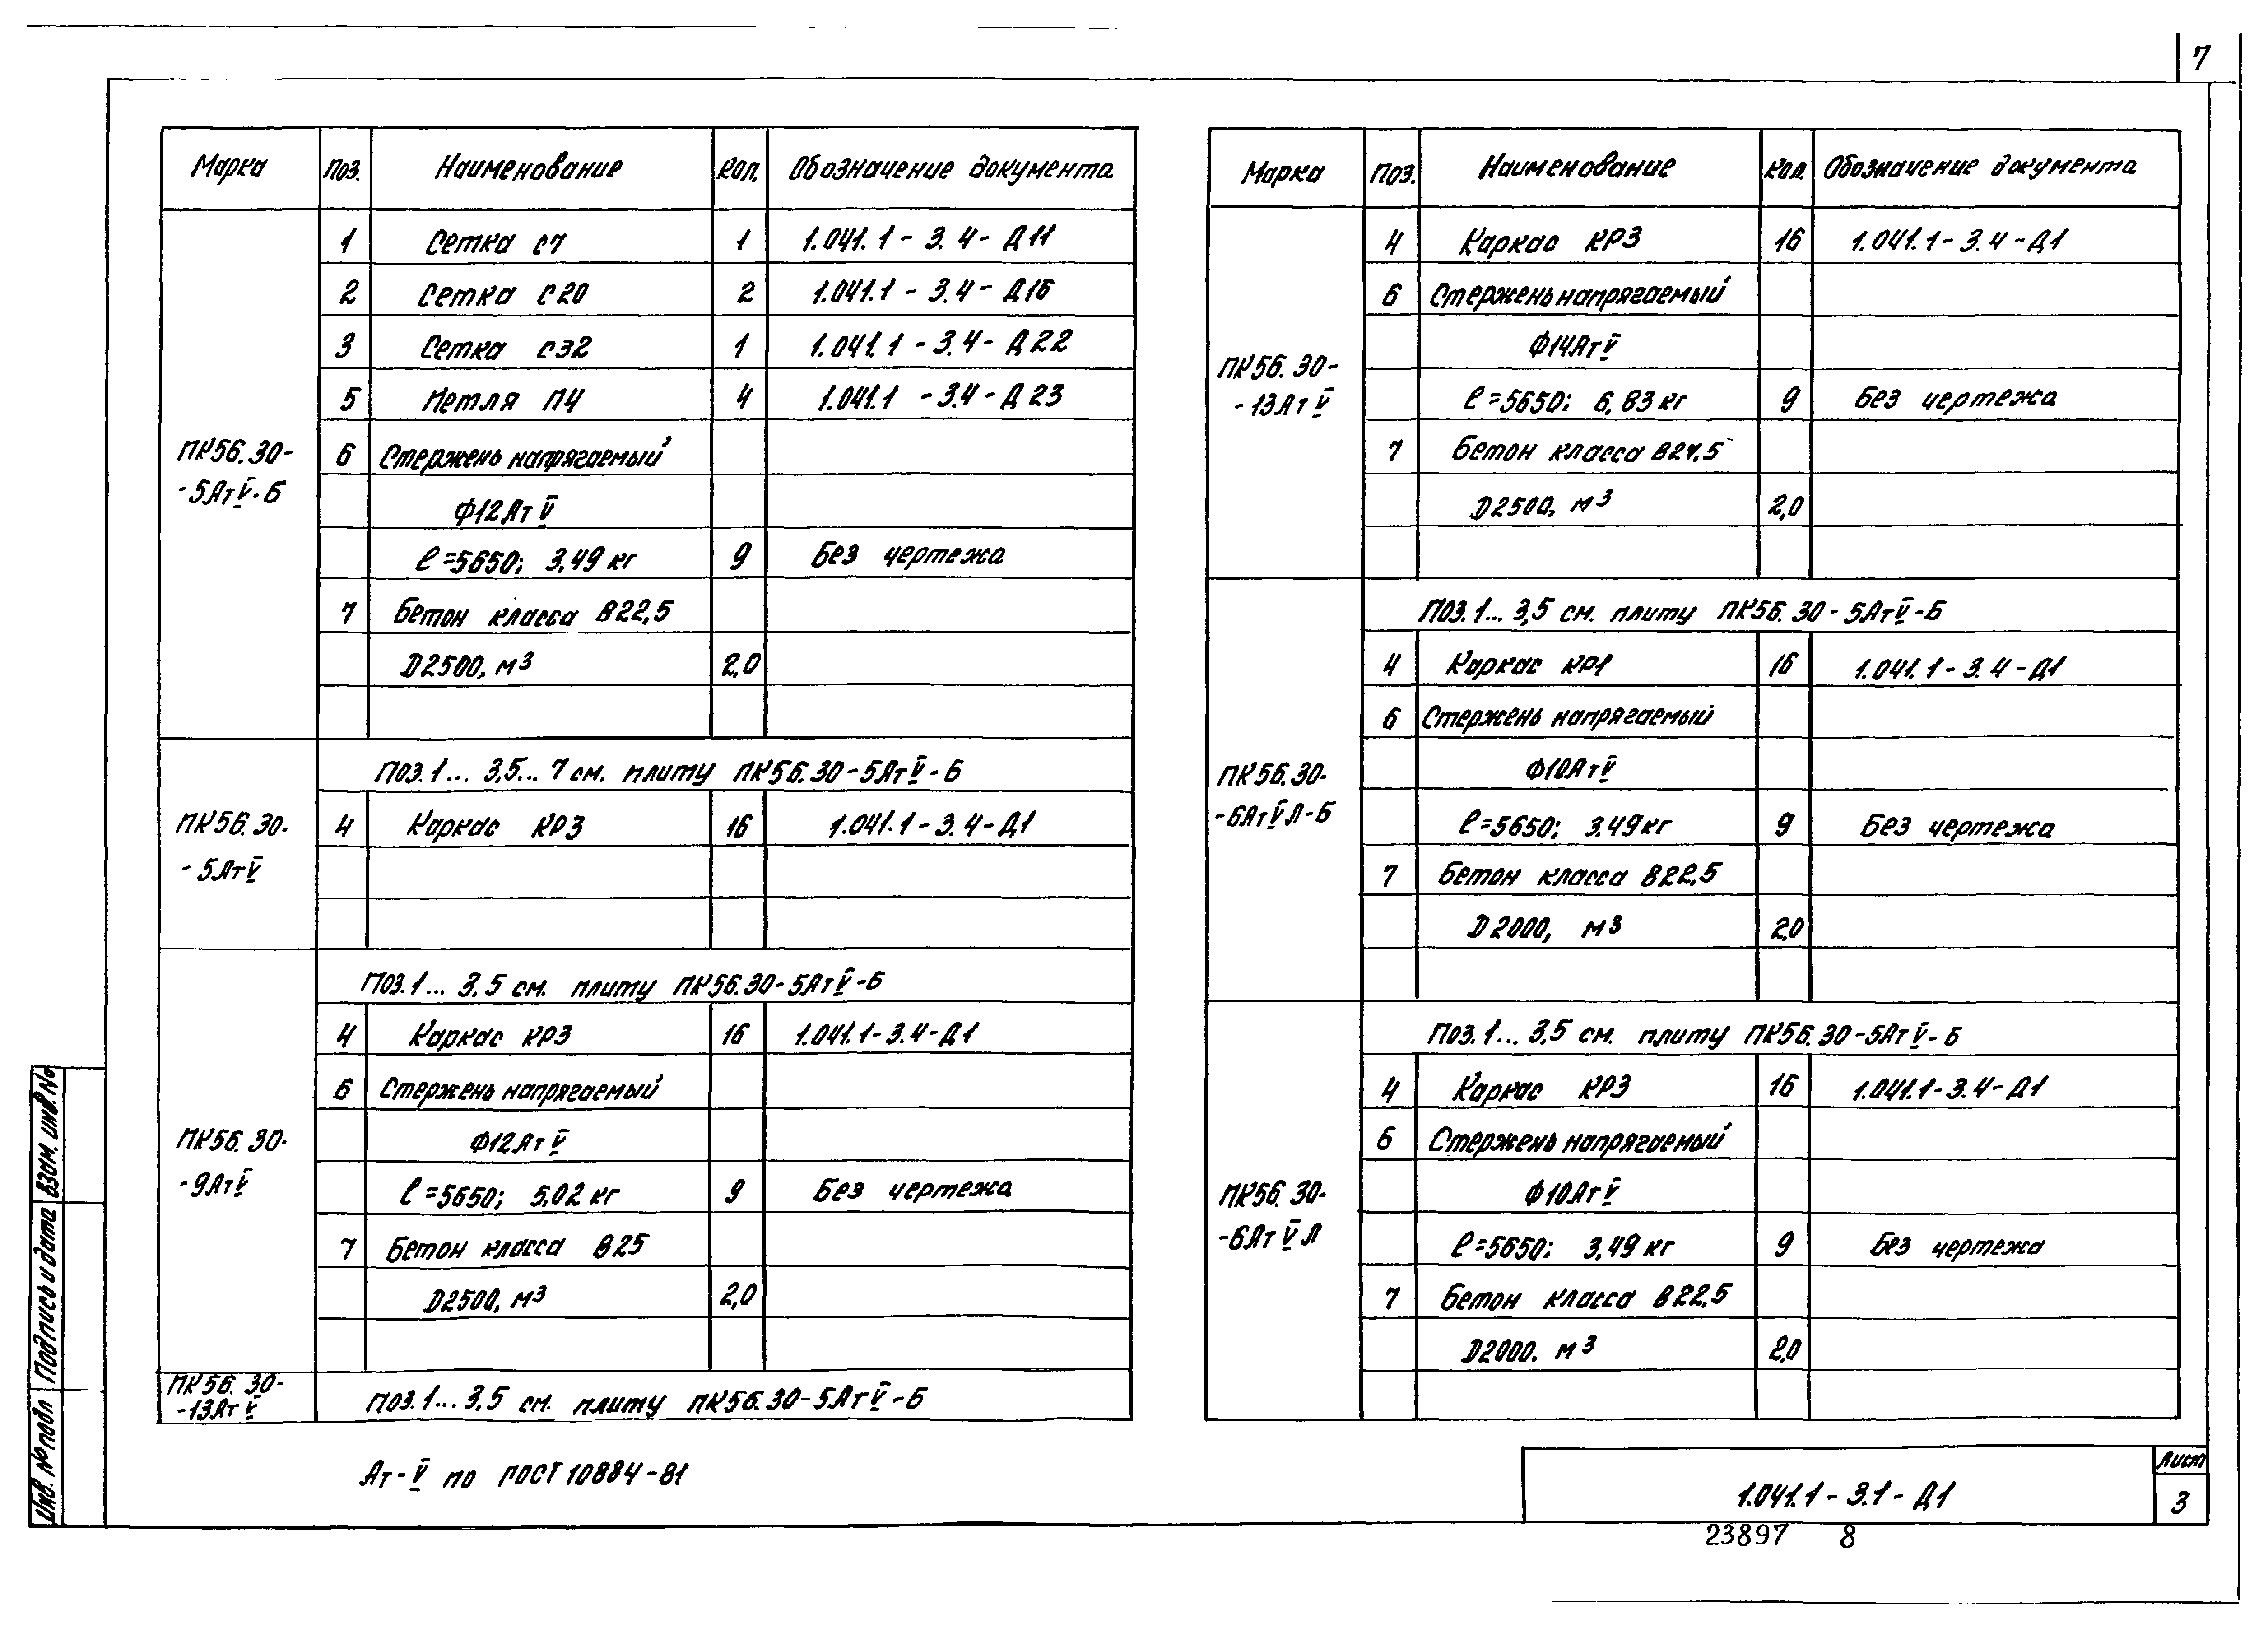 7
Марка Поз. Наименование Кол. Обозначение документа
1 Сетка С7 1 1.041.1-3.4-Д11
2 Сетка С20 2 1.041.1-3.4-Д16
3 Сетка С32 1 1.041.1-3.4-Д22
5 Петля П4 4 1.041.1-3.4-Д23
ПК56.30-
-5АтV-Б
6 Стержень напрягаемый
Ф12АтV
ℓ=5650; 3,49 кг 9 Без чертежа
7 Бетон класса В22,5
D2500, м3 2,0
Поз.1... 3,5... 7 см. плиту ПК56.30-5АтV-Б
ПК56.30-
-5АтV
4 Каркас КР3 16 1.041.1-3.4-Д1
Поз.1... 3,5 см. плиту ПК56.30-5АтV-Б
4 Каркас КР3 16 1.041.1-3.4-Д1
6 Стержень напрягаемый
ПК56.30-
-9АтV
Ф12АтV
ℓ=5650; 5,02 кг 9 Без чертежа
7 Бетон класса В25
D2500, м3 2,0
ПК56.30-
-13АтV
Поз.1... 3,5 см. плиту ПК56.30-5АтV-Б
Марка Поз. Наименование Кол. Обозначение документа
4 Каркас КР3 16 1.041.1-3.4-Д1
6 Стержень напрягаемый
Ф14АтV
ПК56.30-
-13АтV
ℓ=5650; 6,83 кг 9 Без чертежа
7 Бетон класса В27,5
D2500, м3 2,0
Поз.1... 3,5 см. плиту ПК56.30-5АтV-Б
4 Каркас КР1 16 1.041.1-3.4-Д1
6 Стержень напрягаемый
ПК56.30-
-6АтVЛ-Б
Ф10АтV
ℓ=5650; 3,49 кг 9 Без чертежа
7 Бетон класса В22,5
D2000, м3 2,0
Поз.1... 3,5 см. плиту ПК56.30-5АтV-Б
4 Каркас КР3 16 1.041.1-3.4-Д1
6 Стержень напрягаемый
ПК56.30-
-6АтVЛ
Ф10АтV
ℓ=5650; 3,49 кг 9 Без чертежа
7 Бетон класса В22,5
D2000. м3 2,0
Ат-V по ГОСТ 10884-81
1.041.1-3.1-Д1
Лист
3
23897 8
Инв. № подл
Подпись и дата
Взам. инв. №